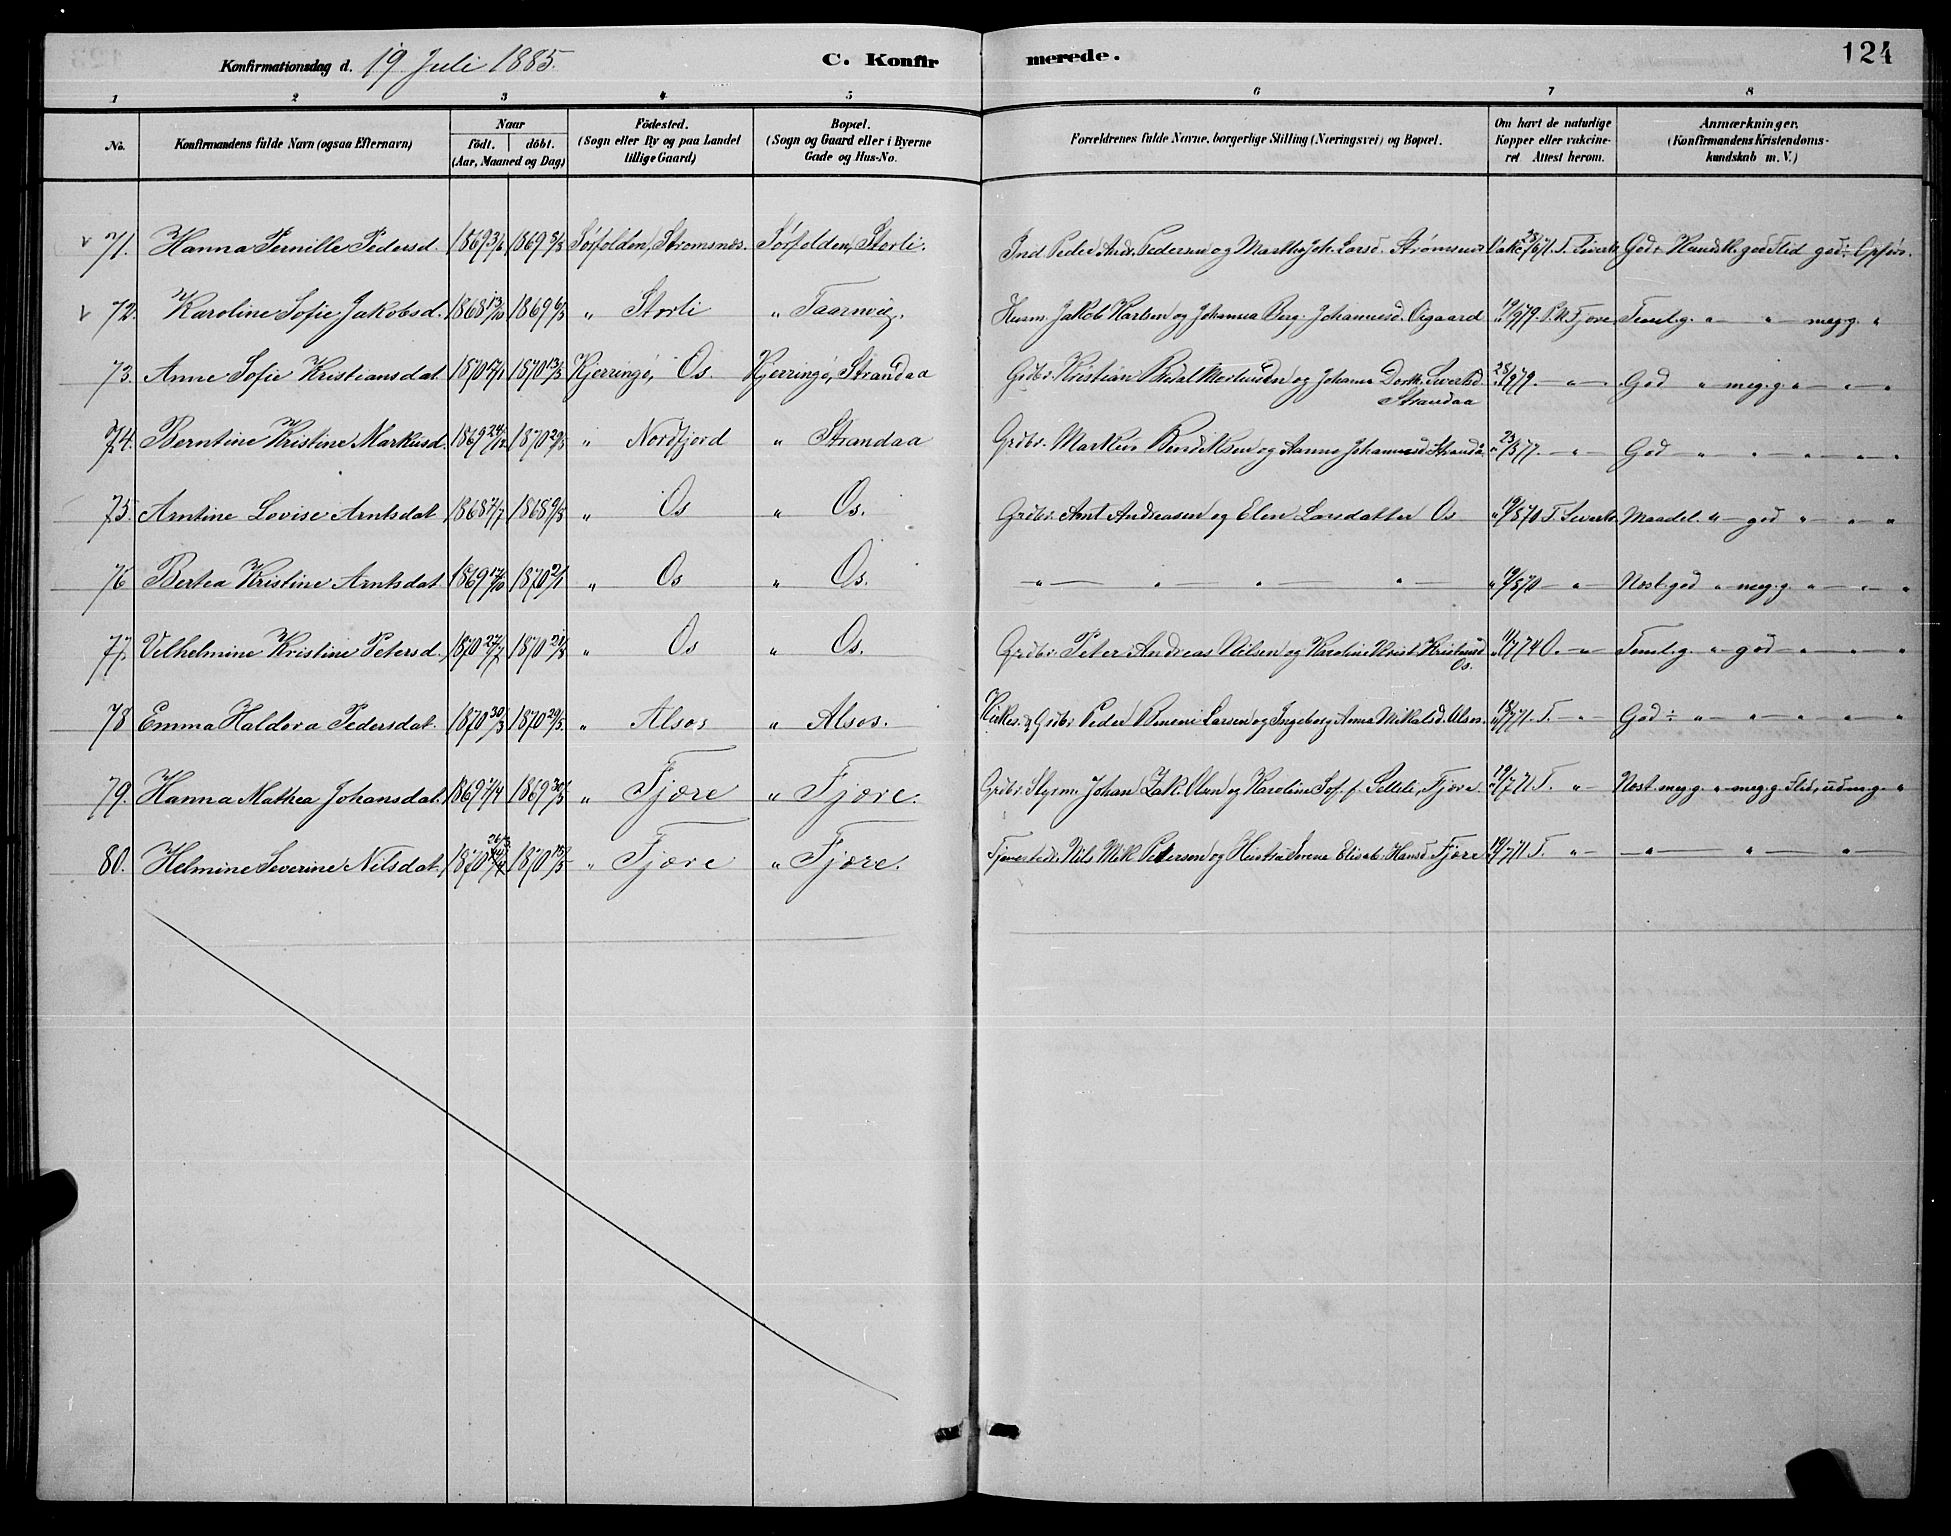 124
Konfirmationsdag d. 19 Juli 1885.
C. Konfir
merede.
1 2 3 4 5 6 7 8
No.
Konfirmandens fulde Navn (ogsaa Efternavn)
Naar
födt. döbt.
(Aar, Maaned og Dag)
Födested.
(Sogn eller By og paa Landet
tillige Gaard)
Bopæl.
(Sogn og Gaard eller i Byerne
Gade og Hus-No.
Forældrenes fulde Navne, borgerlige Stilling (Næringsvei) og Bopæl.
Om havt de naturlige
Kopper eller vakcine-
ret Attest herom.
Anmærkninger.
(Konfirmandens Kristendoms-
kundskab m. V.)
71. Hanna Pernille Pedersd. 1869 3/6 1869 8/8 Sørfolden, Strømsnes. Sørfolden, Storli. Ind Peder Andr. Pedersen og Martha Joh. Larsd. Strømsnes God Kundsk. god Flid god Opførs.
72. Karoline Sofie Jakobsd. 1868 13/10 1869 6/5 " Storli " Taarnvig. Husm. Jakob Karlsen og Johanna Berg. Johannesd. 19/979. P. M. Fjære Temlig. " — " — meg.g. "
73. Anne Sofie Kristiansdat. 1870 1870 13/3 Kjerringø, Os. Kjerringø, Strandaa Grdbr. Kristian og Johanna Dorth. Sivertsd. 28/979. — " — God " meg.g " — " — "
Strandaa
74. Berntine Kristine Markusd. 1869 24/12 1870 29/5 " Nordfjord " Strandaa Grdbr. Markus Bendiksen og Hanna Johannesd. Strandaa " 23/877. — " — God — " — " — " — " — "
75. Arntine Lovise Arntsdat. 1868 7/7 1868 9/8 " Os " Os. Grdbr. Arnt Andreasen og Elen Larsdatter Os " 19/870 T. Siverts. Maadel. " — god " — " — "
76 Bertea Kristine Arntsdat. 1869 17/10 1870 2/1 " Os " Os. — " — " — " — " — " 19/870 — " — Næst. god " meg.g. " — " — "
77. Vilhelmine Kristine Petersd. 1870 27/7 1870 21/8 " Os " Os. Grdbr. Peter Andreas Nilsen og Karoline Krist. Kristensd. " 11/774 O. — " — Temlig. " god — " — " — "
Os.
78 Emma Haldora Pedersdat. 1870 30/3 1870 29/5. " Alsos " Alsos. Kirkes. & Grdbr. Peder Larsen og Ingeborg Anna Nikolaisd. Alsos. " 18/771. T. — " — God ÷ " — " — " — " — "
79. Hanna Mathea Johansdat. 1869 7/4 1869 30/5 " Fjære " Fjære. Grdbr. Styrm. Johan Zak. Olsen og Karoline Sof. f. Fjære 19/771 T. " — Næst. meg.g. " meg.g. Flid, udm.g. "
80. Helmine Severine Nilsdat. 1870 26/3 1870 15/5 " Fjære " Fjære. Nils Mik. Pedersen og Hustru Serene Elisab. Hansd. Fjære 19/771 T. " — — " — " — " —